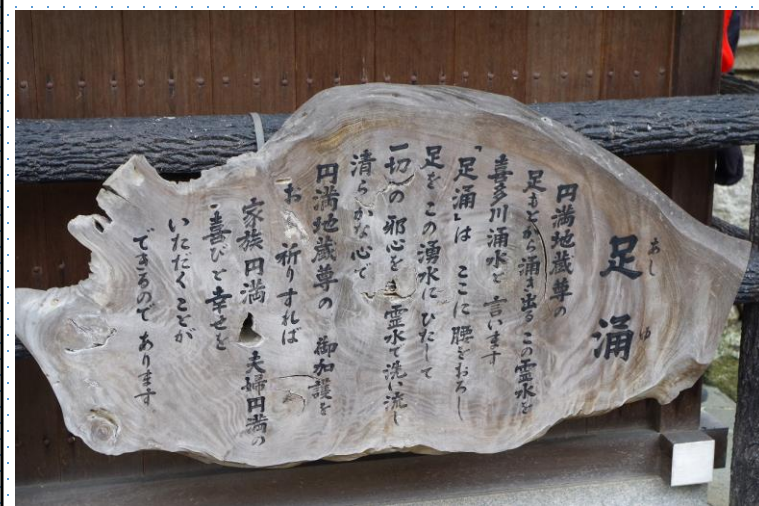 足涌
あしゆ
円満地蔵尊の
足もとから涌き出る この霊水を
喜多川涌水と 言います
「足涌」は ここに腰をおろし
足を この湧水に ひたして
一切の 邪心を 霊水で洗い流し
清らかな心で
円満地蔵尊の 御加護を
お 祈りすれば
家族円満 夫婦円満の
喜びと幸せを
いただくことが
できるので あります